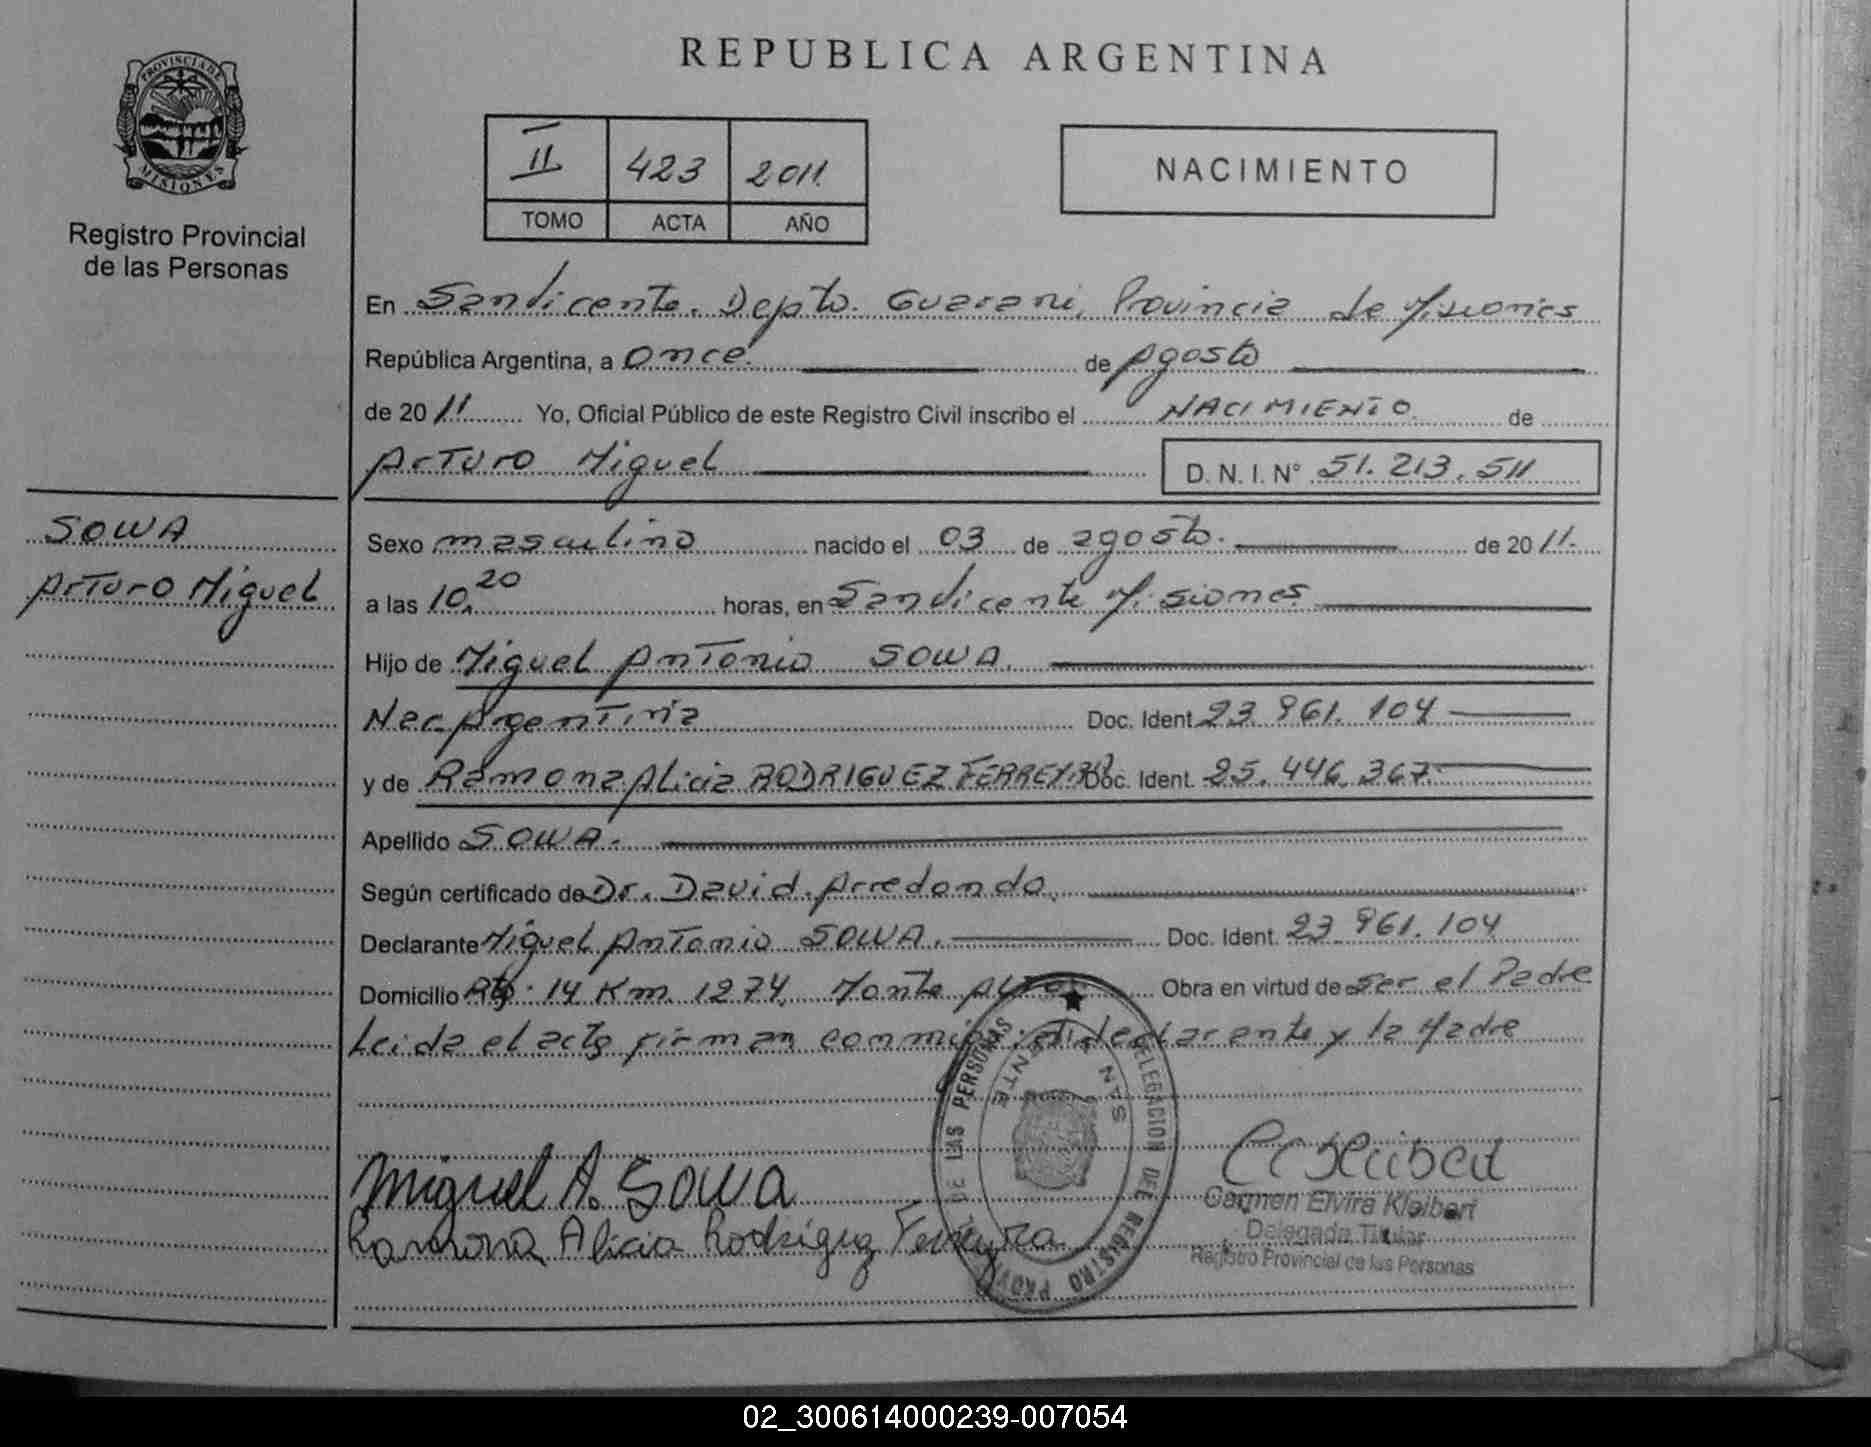 REPUBLICA ARGENTINA
PROVINCIA DE
MISIONES
Registro Provincial
de las Personas
II 423 2011
TOMO ACTA AÑO
NACIMIENTO
En San Vicente. Depto. Guarani, Provincia de Misiones
República Argentina, a once de Agosto
de 2011 Yo, Oficial Público de este Registro Civil inscribo el NACIMIENTO de
Arturo Miguel D. N. I. N° 51.213.511
SOWA
Arturo Miguel
Sexo masculino nacido el 03 de agosto. de 2011.
a las 10.20 horas, en San Vicente Misiones
Hijo de Miguel Antonio SOWA.
Nac. Argentina Doc. Ident. 23 961.104
y de Ramona Alicia RODRIGUEZ FERREYRA Doc. Ident. 25.446.367
Apellido SOWA.
Según certificado de Dr. David Arredondo.
Declarante Miguel Antonio SOWA. Doc. Ident. 23 961.104
Domicilio 14 Km 1274, Monte Obra en virtud de ser el Padre
Leida el acta firman conmigo: el declarante y la Madre
DELEGACION DEL REGISTRO PROVINCIAL DE LAS PERSONAS
SAN VICENTE
Miguel A. Sowa
Ramona Alicia Rodriguez Ferreyra
Carmen Elvira Kleibert
Delegada Titular
Registro Provincial de las Personas
02_300614000239-007054